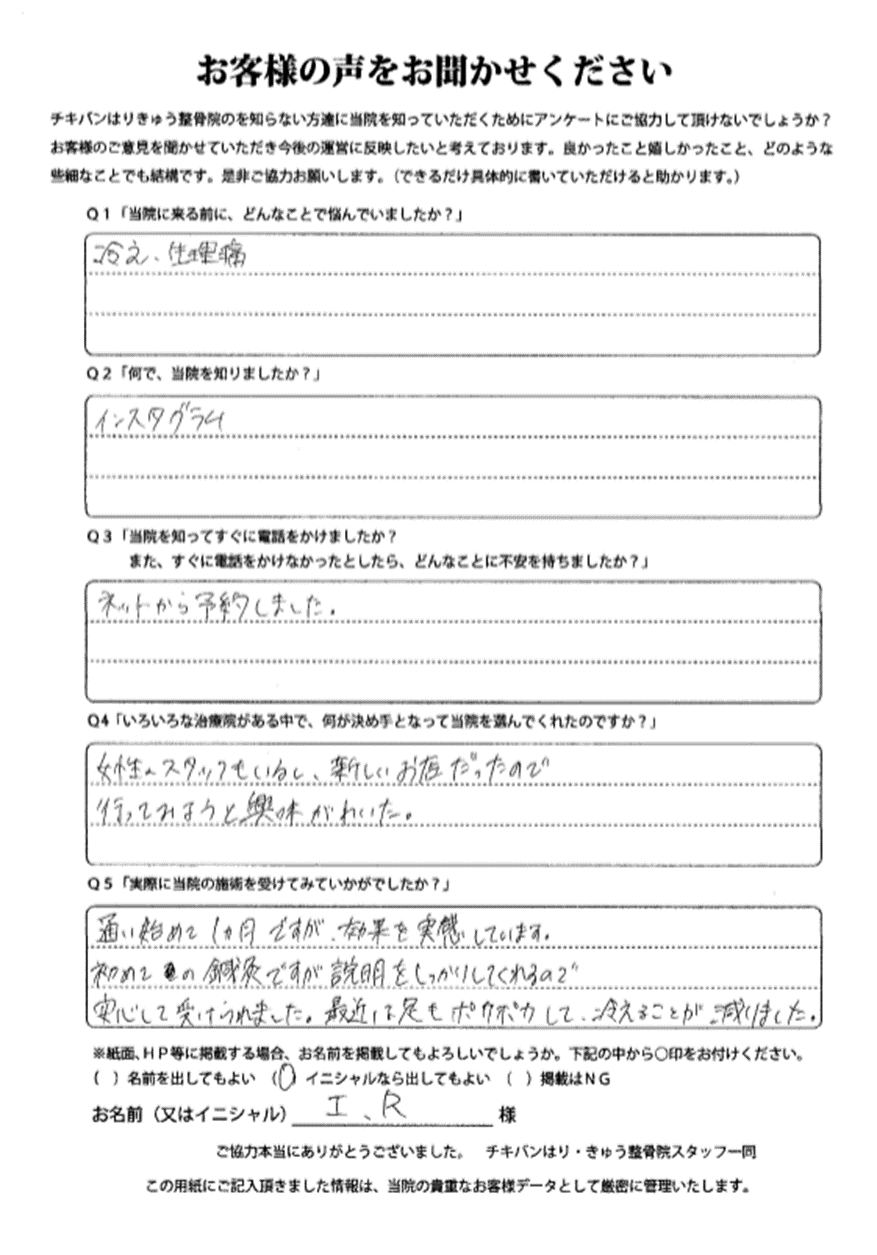 お客様の声をお聞かせください
チキバンはりきゅう整骨院のを知らない方達に当院を知っていただくためにアンケートにご協力して頂けないでしょうか？
お客様のご意見を聞かせていただき今後の運営に反映したいと考えております。良かったこと嬉しかったこと、どのような
些細なことでも結構です。是非ご協力お願いします。（できるだけ具体的に書いていただけると助かります。）
Q１「当院に来る前に、どんなことで悩んでいましたか？」
冷え、生理痛
Q２「何で、当院を知りましたか？」
インスタグラム
Q３「当院を知ってすぐに電話をかけましたか？
また、すぐに電話をかけなかったとしたら、どんなことに不安を持ちましたか？」
ネットから予約しました。
Q4「いろいろな治療院がある中で、何が決め手となって当院を選んでくれたのですか？」
女性のスタッフもいるし、新しいお店だったので
行ってみようと興味がわいた。
Q５「実際に当院の施術を受けてみていかがでしたか？」
通い始めて1ヵ月ですが、効果を実感しています。
初めての鍼灸ですが説明をしっかりしてくれるので
安心して受けられました。最近は足もポカポカして、冷えることが減りました。
※紙面、ＨＰ等に掲載する場合、お名前を掲載してもよろしいでしょうか。下記の中から〇印をお付けください。
（ ）名前を出してもよい （〇）イニシャルなら出してもよい （ ）掲載はＮＧ
お名前（又はイニシャル） I、R 様
ご協力本当にありがとうございました。 チキバンはり・きゅう整骨院スタッフ一同
この用紙にご記入頂きました情報は、当院の貴重なお客様データとして厳密に管理いたします。